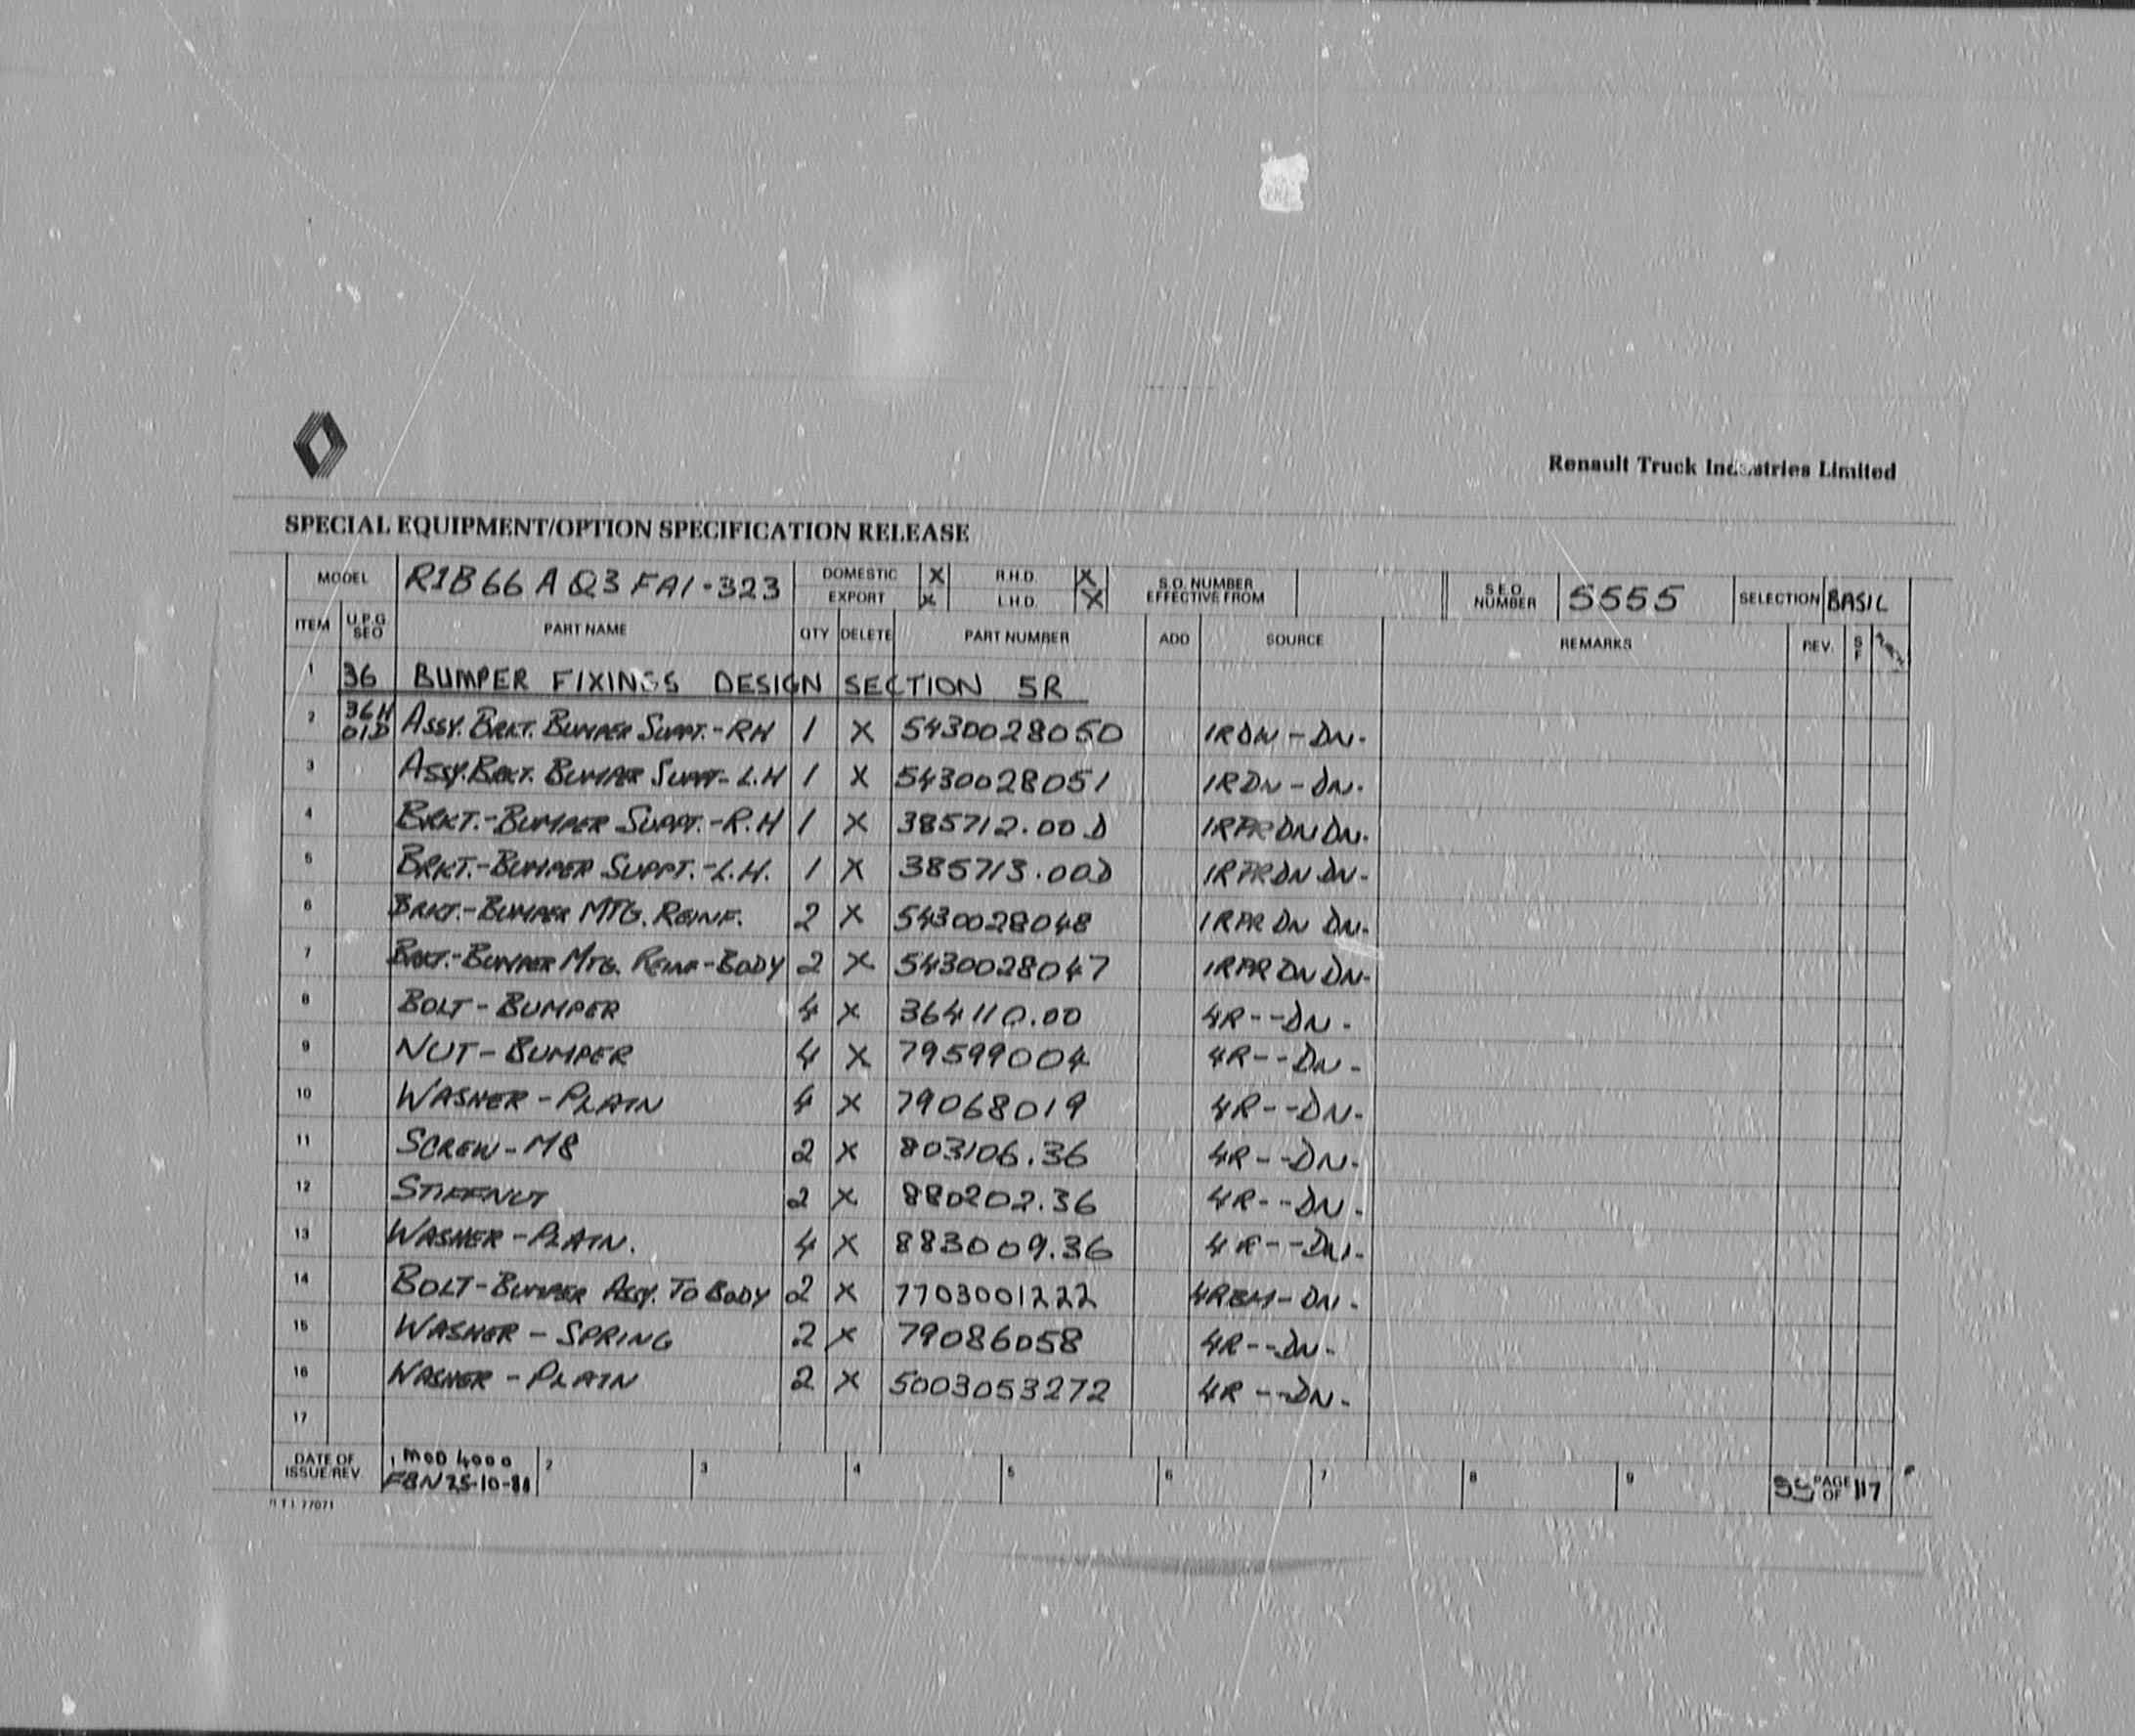 Renault Truck Industries Limited
SPECIAL EQUIPMENT/OPTION SPECIFICATION RELEASE
MODEL R1B66 A Q3 FA1-323 DOMESTIC X R.H.D. X S.O. NUMBER EFFECTIVE FROM S.E.O. NUMBER 5555 SELECTION BASIC
EXPORT X L.H.D. X
ITEM U.P.G. SEO PART NAME QTY DELETE PART NUMBER ADD SOURCE REMARKS REV. S F
1 36 BUMPER FIXINGS DESIGN SECTION 5R
2 36H 01D ASSY. BRKT. BUMPER SUPPT.-RH 1 X 5430028050 1RDN-DN.
3 ASSY. BRKT. BUMPER SUPPT-L.H 1 X 5430028051 1RDN-DN.
4 BRKT.-BUMPER SUPPT.-R.H 1 X 385712.00D 1RPRDNDN.
5 BRKT.-BUMPER SUPPT.-L.H. 1 X 385713.00D 1RPRDN DN-
6 BRKT.-BUMPER MTG. REINF. 2 X 5430028048 1RPR DN DN.
7 BRKT.-BUMPER MTG. REINF-BODY 2 X 5430028047 1RPR DN DN.
8 BOLT-BUMPER 4 X 364110.00 4R--DN-
9 NUT-BUMPER 4 X 79599004 4R--DN-
10 WASHER-PLAIN 4 X 79068019 4R--DN.
11 SCREW-M8 2 X 803106.36 4R--DN.
12 STIFFNUT 2 X 880202.36 4R--DN.
13 WASHER-PLAIN. 4 X 883009.36 4R--DN.
14 BOLT-BUMPER ASSY. TO BODY 2 X 7703001222 4RBM-DN.
15 WASHER-SPRING 2 X 79086058 4R--DN-
16 WASHER-PLAIN 2 X 5003053272 4R--DN.
17
DATE OF ISSUE/REV. 1 MOD 4000 2 3 4 5 6 7 8 9 PAGE OF 117
FBN 25-10-88
RTI 77071